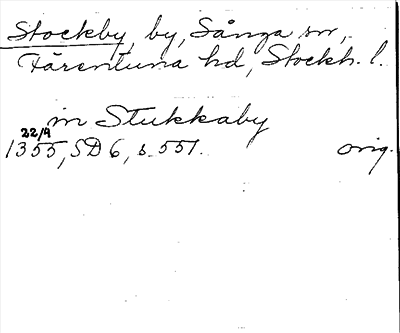 Stockby, by, Sånga sn,
Färentuna hd, Stockh. l.
in Stukkaby
22/9
1355, SD 6, s. 551. orig.